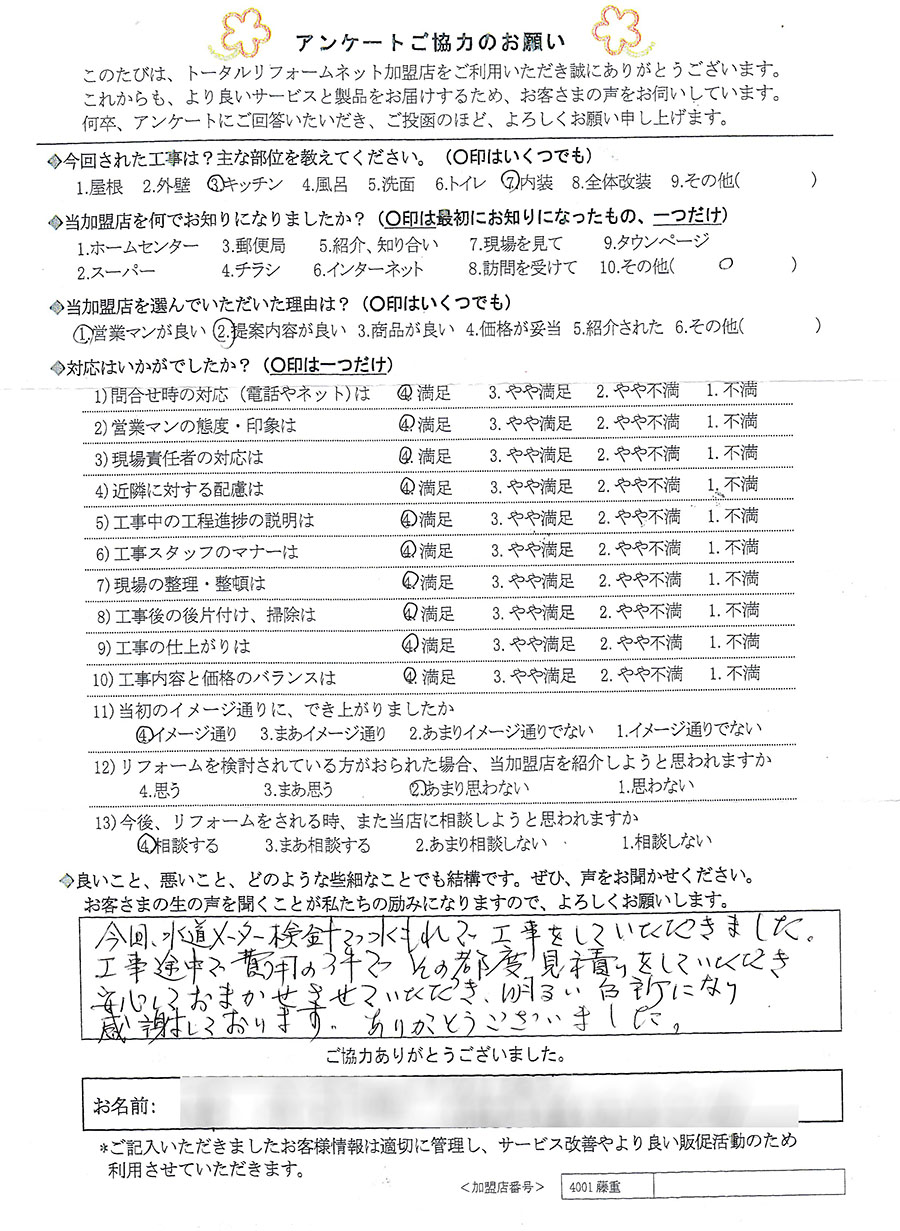 アンケートご協力のお願い
このたびは、トータルリフォームネット加盟店をご利用いただき誠にありがとうございます。
これからも、より良いサービスと製品をお届けするため、お客さまの声をお伺いしています。
何卒、アンケートにご回答いたいだき、ご投函のほど、よろしくお願い申し上げます。
◆今回された工事は？主な部位を教えてください。（〇印はいくつでも）
1.屋根 2.外壁 ③キッチン 4.風呂 5.洗面 6.トイレ ⑦内装 8.全体改装 9.その他( )
◆当加盟店を何でお知りになりましたか？（〇印は最初にお知りになったもの、一つだけ）
1.ホームセンター 3.郵便局 5.紹介、知り合い 7.現場を見て 9.タウンページ
2.スーパー 4.チラシ 6.インターネット 8.訪問を受けて 10.その他( ○ )
◆当加盟店を選んでいただいた理由は？（〇印はいくつでも）
①営業マンが良い ②提案内容が良い 3.商品が良い 4.価格が妥当 5.紹介された 6.その他( )
◆対応はいかがでしたか？（〇印は一つだけ）
1)問合せ時の対応（電話やネット)は ④満足 3.やや満足 2.やや不満 1.不満
2)営業マンの態度・印象は ④満足 3.やや満足 2.やや不満 1.不満
3)現場責任者の対応は ④満足 3.やや満足 2.やや不満 1.不満
4)近隣に対する配慮は ④満足 3.やや満足 2.やや不満 1.不満
5)工事中の工程進捗の説明は ④満足 3.やや満足 2.やや不満 1.不満
6)工事スタッフのマナーは ④満足 3.やや満足 2.やや不満 1.不満
7)現場の整理・整頓は ④満足 3.やや満足 2.やや不満 1.不満
8)工事後の後片付け、掃除は ④満足 3.やや満足 2.やや不満 1.不満
9)工事の仕上がりは ④満足 3.やや満足 2.やや不満 1.不満
10)工事内容と価格のバランスは ④満足 3.やや満足 2.やや不満 1.不満
11)当初のイメージ通りに、でき上がりましたか
④イメージ通り 3.まあイメージ通り 2.あまりイメージ通りでない 1.イメージ通りでない
12)リフォームを検討されている方がおられた場合、当加盟店を紹介しようと思われますか
4.思う 3.まあ思う ②あまり思わない 1.思わない
13)今後、リフォームをされる時、また当店に相談しようと思われますか
④相談する 3.まあ相談する 2.あまり相談しない 1.相談しない
◆良いこと、悪いこと、どのような些細なことでも結構です。ぜひ、声をお聞かせください。
お客さまの生の声を聞くことが私たちの励みになりますので、よろしくお願いします。
今回、水道メーター検針で水もれで工事をしていただきました。
工事途中で費用の件でその都度見積りをしていただき
安心しておまかせさせていただき、明るい台所になり
感謝しております。ありがとうございました。
ご協力ありがとうございました。
お名前:
*ご記入いただきましたお客様情報は適切に管理し、サービス改善やより良い販促活動のため
利用させていただきます。
＜加盟店番号＞ 4001藤重